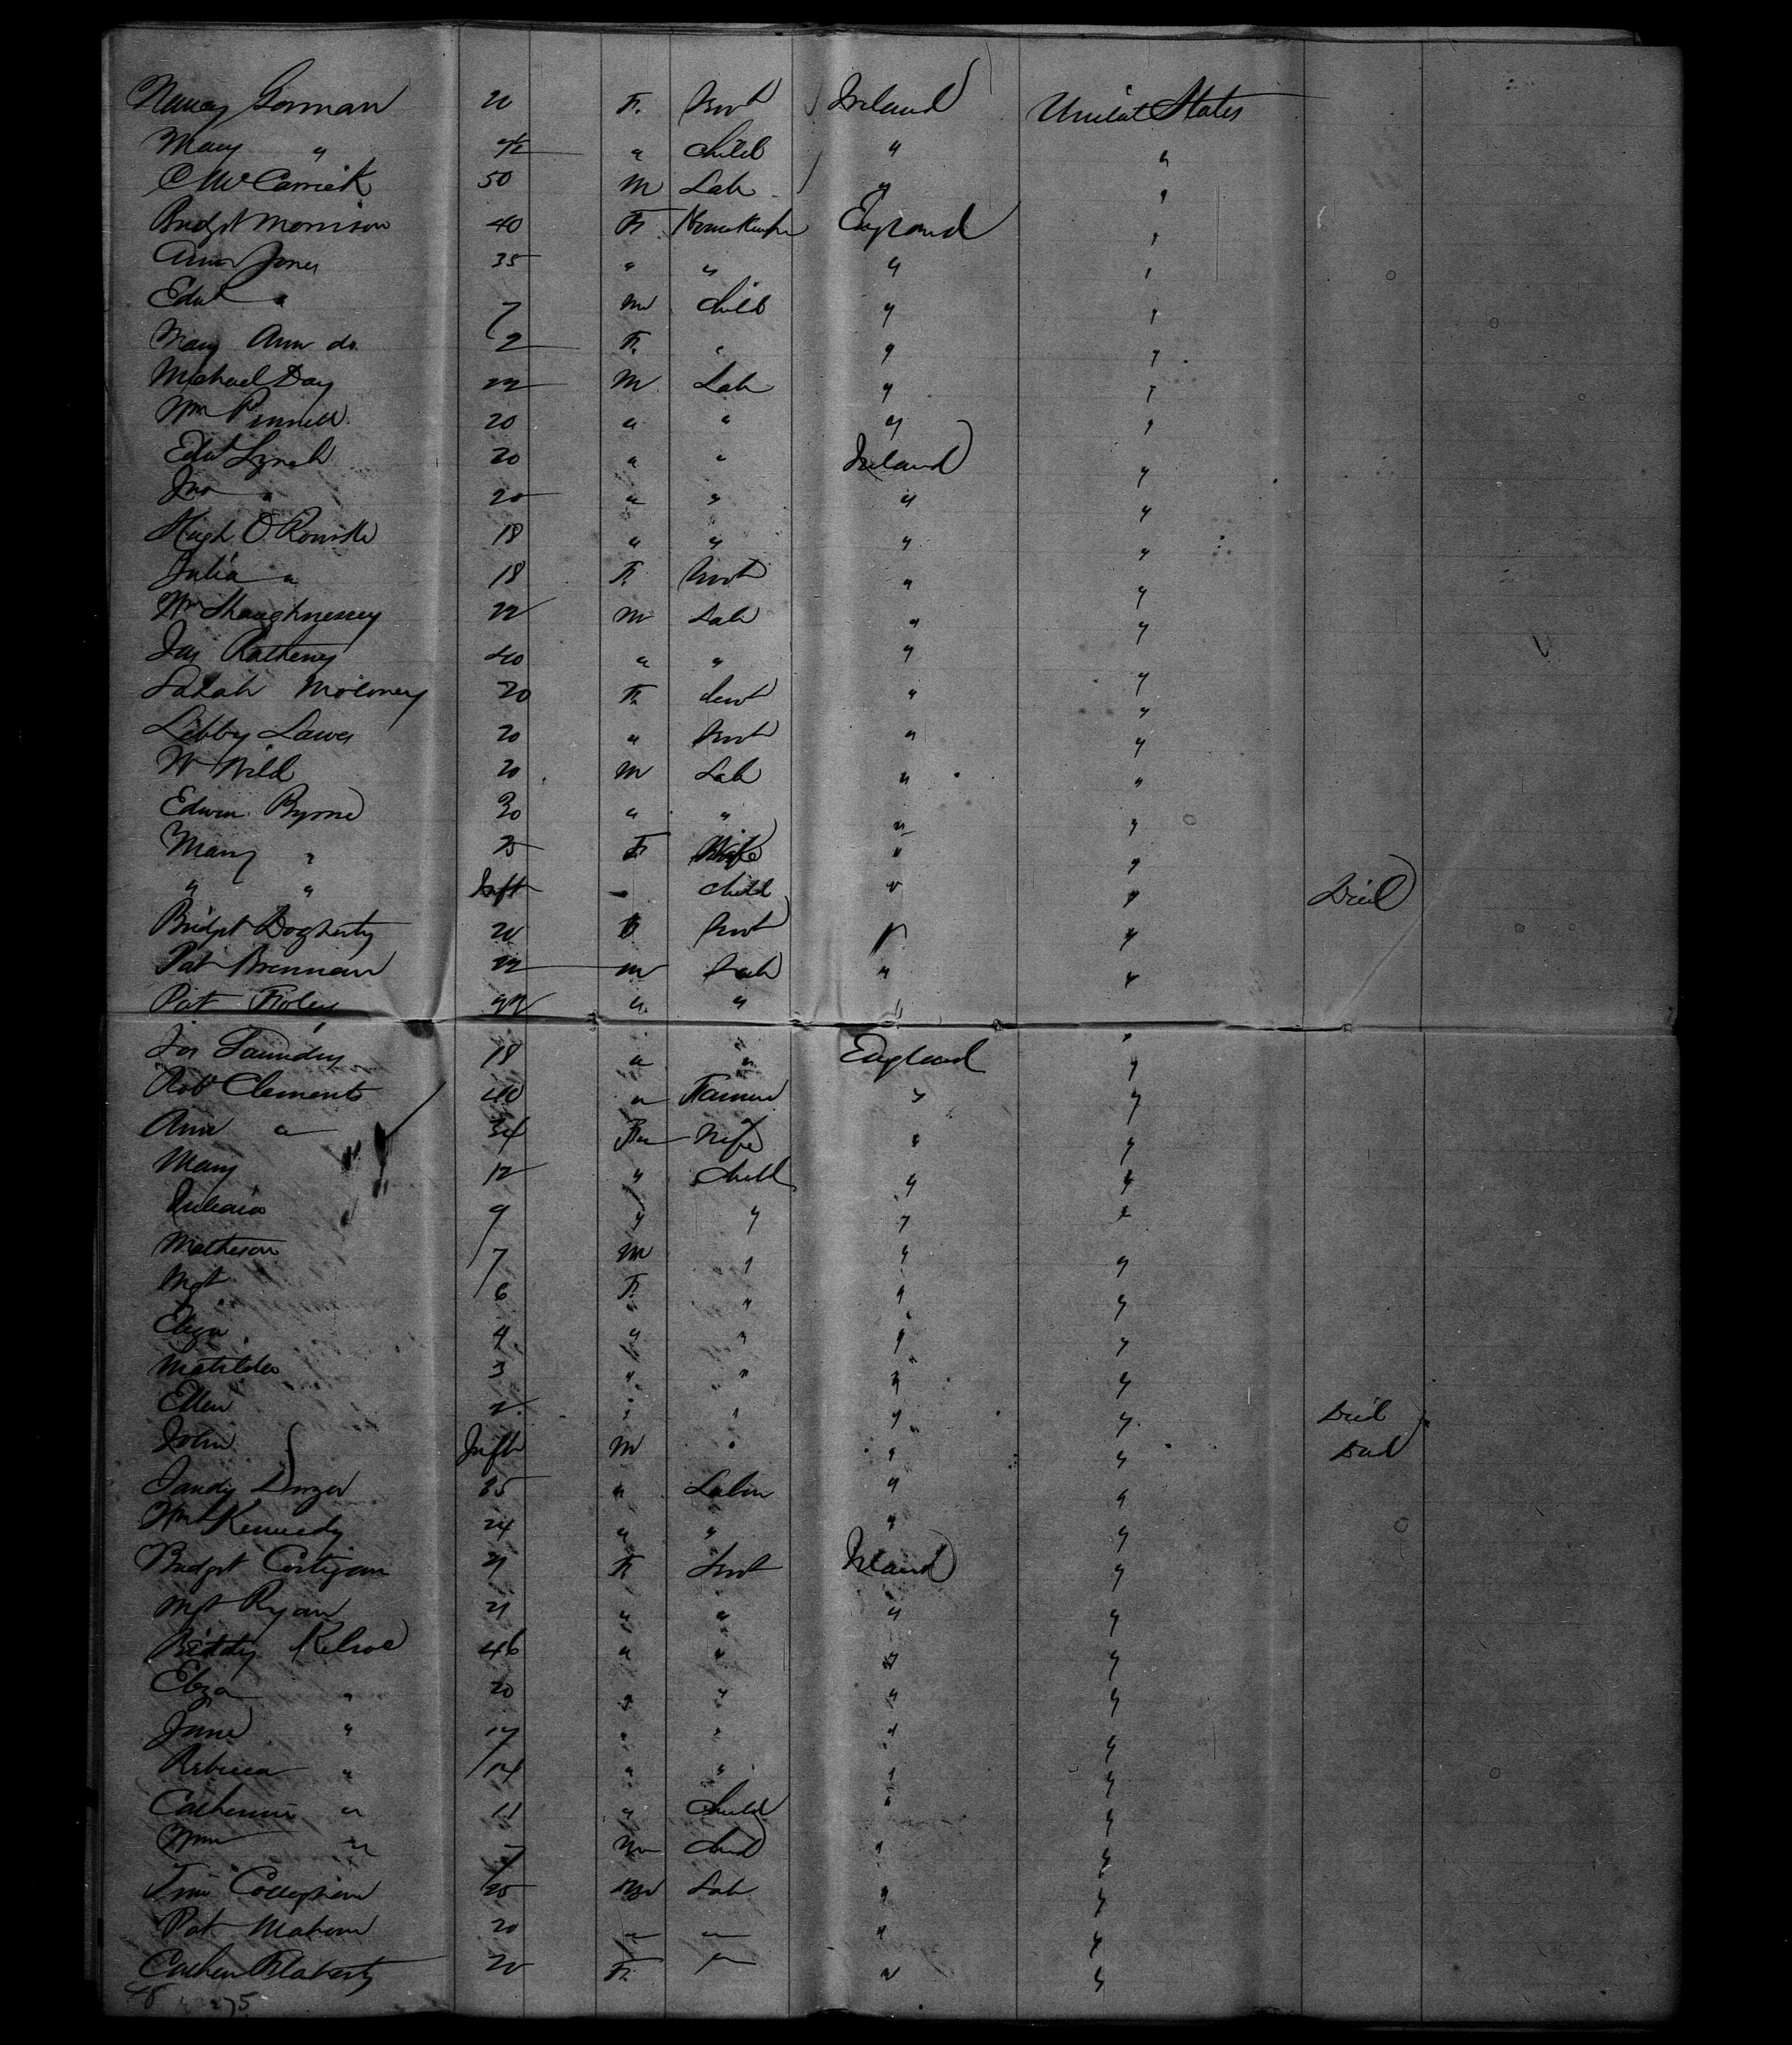 Nancy Gorman 20 F. Svt Ireland United States
Mary " " Child " "
C McCarrick 50 M Lab " "
Bridgt Morrison 40 F. Housekeeper England "
Ann Jones 35 " " " "
Edwd " 7 M Child " "
Mary Ann do. 2 F. " " "
Michael Day 22 M Lab " "
Wm Pennell 20 " " " "
Edwd Lynch 20 " " Ireland "
Jno " 20 " " " "
Hugh O Rourke 18 " " " "
Julia " 18 F. Svt " "
Wm Shaughnessey 22 M Lab " "
Jas 40 " " " "
Sarah Moloney 20 F. Servt " "
Libby Lawes 20 " Svt " "
W Wild 20 M Lab " "
Edwin Byrne 30 " " " "
Mary " 25 F. Wife " "
" " Inft — Child " " Died
Bridgt Dogherty 20 F Svt " "
Pat Brennan 22 M Lab " "
Pat Foley 22 " " " "
Jos Saunders 18 " " England "
Robt Clements 40 " Farmer " "
Ann " 34 F Wife " "
Mary 12 " Child " "
9 " " " "
Matheson 7 M " " "
Mgt 6 F. " " "
Eliza 4 " " " "
Matilda 3 " " " "
Ellen 2 " " " " Died
John Inft M " " " Died
Sandy 35 " Labor " "
Wm Kennedy 24 " " " "
Bridgt Costigan 21 F. Svt Ireland "
Mgt Ryan 21 " " " "
Biddy Kilroe 46 " " " "
Eliza " 20 " " " "
Jane " 17 " " " "
Rebecca " 14 " " " "
Catherine " 11 " Child " "
Wm " 7 M Child " "
Tim 25 M Lab " "
Pat Mahone 20 " " " "
Cathen Flaherty 20 F. " " "
48 275